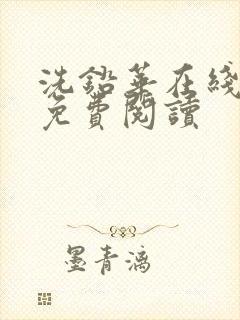 洗鉛華在綫
免費閱讀
墨青漓